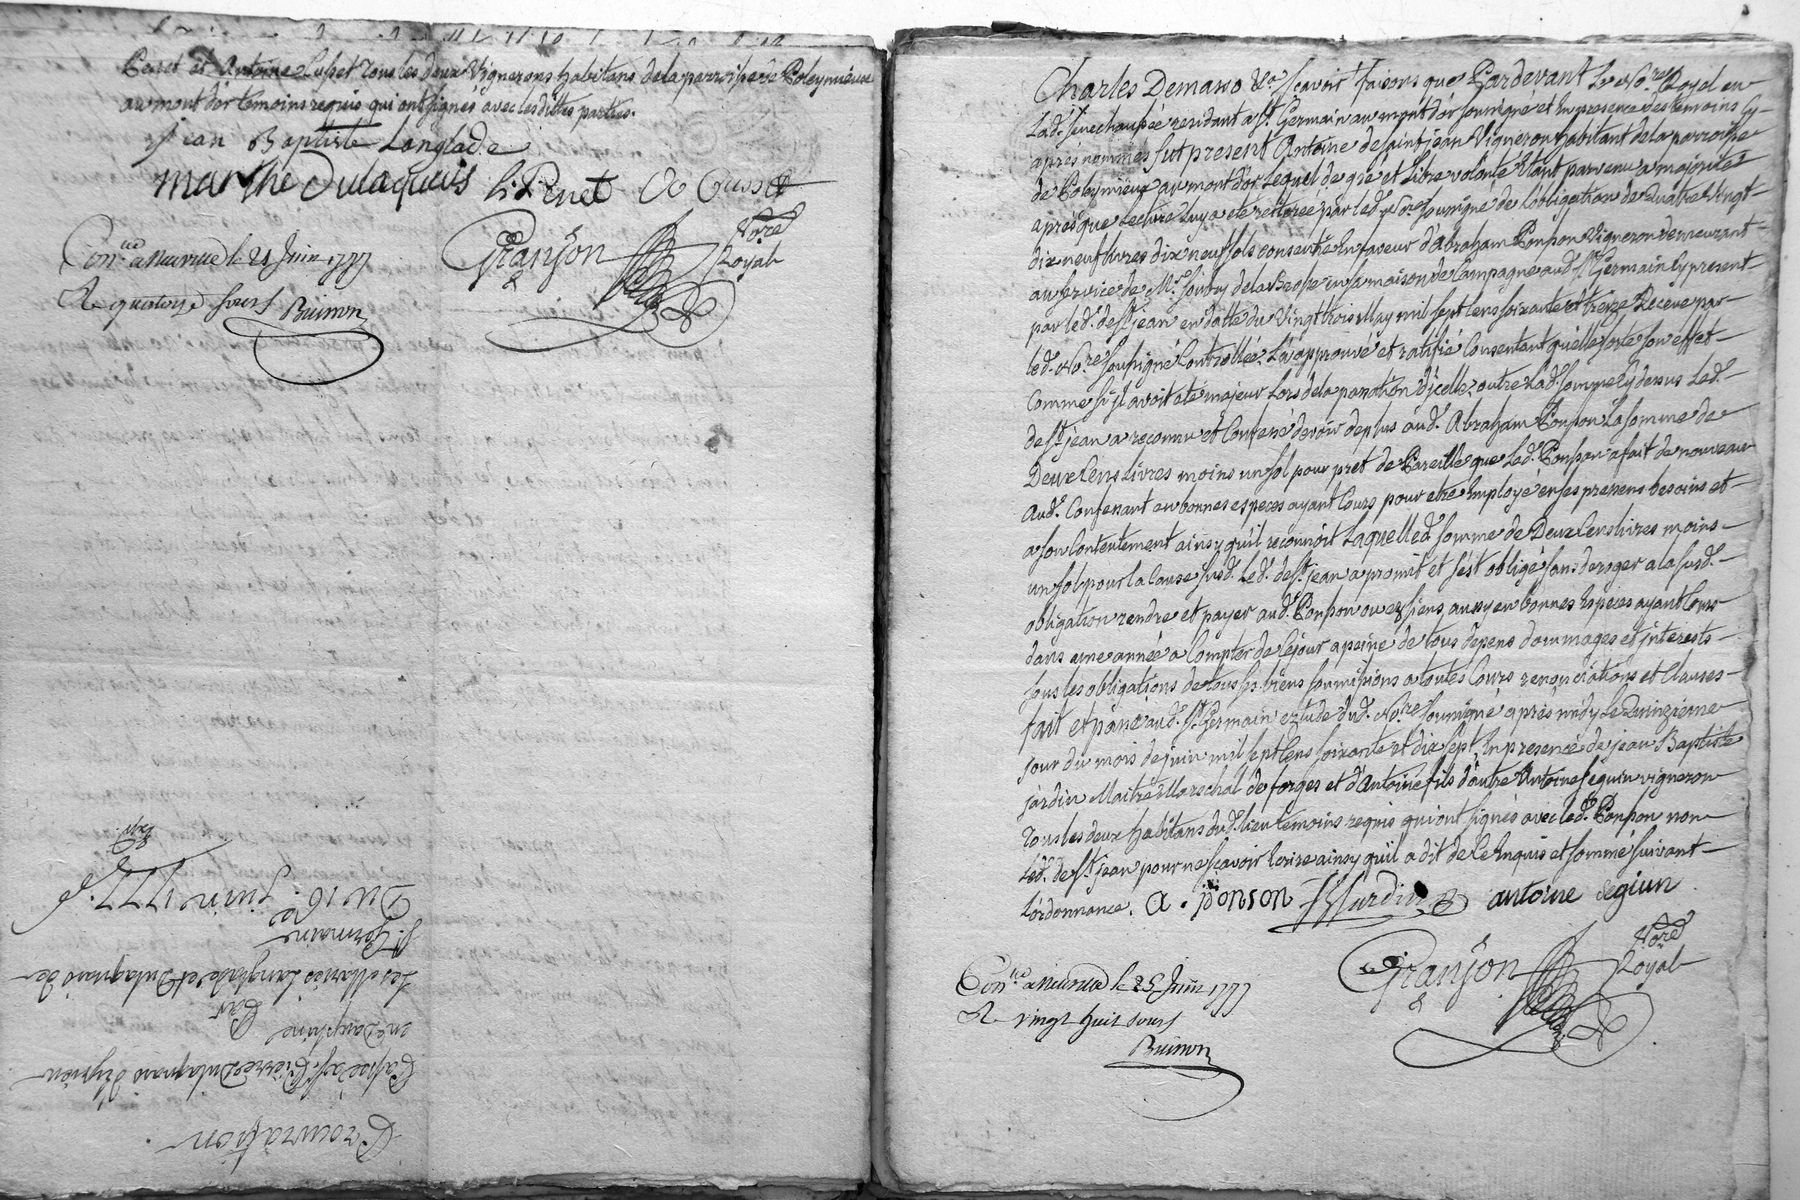 Penet et Antoine Cusset tous les deux Vignerons habitans de la parroisse de Poleymieux
au mont d'or temoins requis qui ont signés avec lesdittes parties.
jean Baptiste Langlade
marthe Dulaquais h. Penet A Cusset
Granjon Nore Royal
Con.lé a neuville le 21 Juin 1777
R quatorze sous Buisson
Procuration
Passée a Sr. Pierre Dulaquais
en Dauphiné
Par
Les Mariés Langlade et Dulaquais de
St. Germain
Du 16e. juin 1777.
Exp.
Charles Demasso &a. sçavoir faisons que Pardevant Le No.re Royal en
Lad. Senechaussée residant a St. Germain au mont d'or soussigné et En presence des temoins Cy-
après nommés fut present Antoine de saint jean Vigneron habitant de la parroisse
de Poleymieux au mont d'or Lequel de gré et Libre volonté Etant parvenu a majorité
après que Lecture luy a eté reiterée par led. No.re soussigné de L'obligation de quatre Vingt-
dix neuf livres dix neuf sols consentie En faveur d'Abraham Ponson Vigneron demeurant
au service de Mr. en sa maison de Campagne aud. St. Germain Cy present-
par led. de St. jean en datte du Vingt trois May mil sept Cens soixante et treize Receue par
led. No.re soussigné Controllée, L'a approuvé et ratifié Consentant qu'elle sorte son effet
Comme s'il avoit eté majeur Lors de la passation d'jcelle, outre Lad. somme Cy dessus Led.
de St. jean a reconnu et Confessé devoir de plus aud. Abraham Ponson La somme de
Deux Cens Livres moins un sol pour prêt de Pareille que Led. Ponson a fait de nouveau
aud. Confessant en bonnes especes ayant Cours pour etre Employé en ses pressens besoins et
a son Contentement ainsy qu'il reconnoit Laquelle d. somme de Deux Cens livres moins
un sol pour la Cause susd. Led. de St. jean a promit et s'est obligé sans deroger a la susd.
obligation rendre et payer aud. Ponson ou ez siens aussy en bonnes Especes ayant Cours
dans une année a Compter de Cejour a peine de tous depens dommages et interests
sous les obligations de tous ses biens soumissions a toutes Cours renonciations et Clauses
fait et passé aud. St. Germain Etude dud. No.re soussigné après midy Le Quinzieme
jour du mois de juin mil sept Cens soixante et dix sept, En presence de jean Baptiste
jardin Maitre Mareschal de forges et d'Antoine fils d'autre Antoine Seguin vigneron
tous les deux habitans dud. lieu temoins requis qui ont signés avec led. Ponson non
led. de St. jean pour ne sçavoir Ecrire ainsy qu'il a dit de Ce Enquis et sommé suivant
L'ordonnance. a. ponson JB Jardin antoine segiun
Granjon Nore Royal
Con.lé a neuville le 25 Juin 1777
R vingt huit sous
Buisson